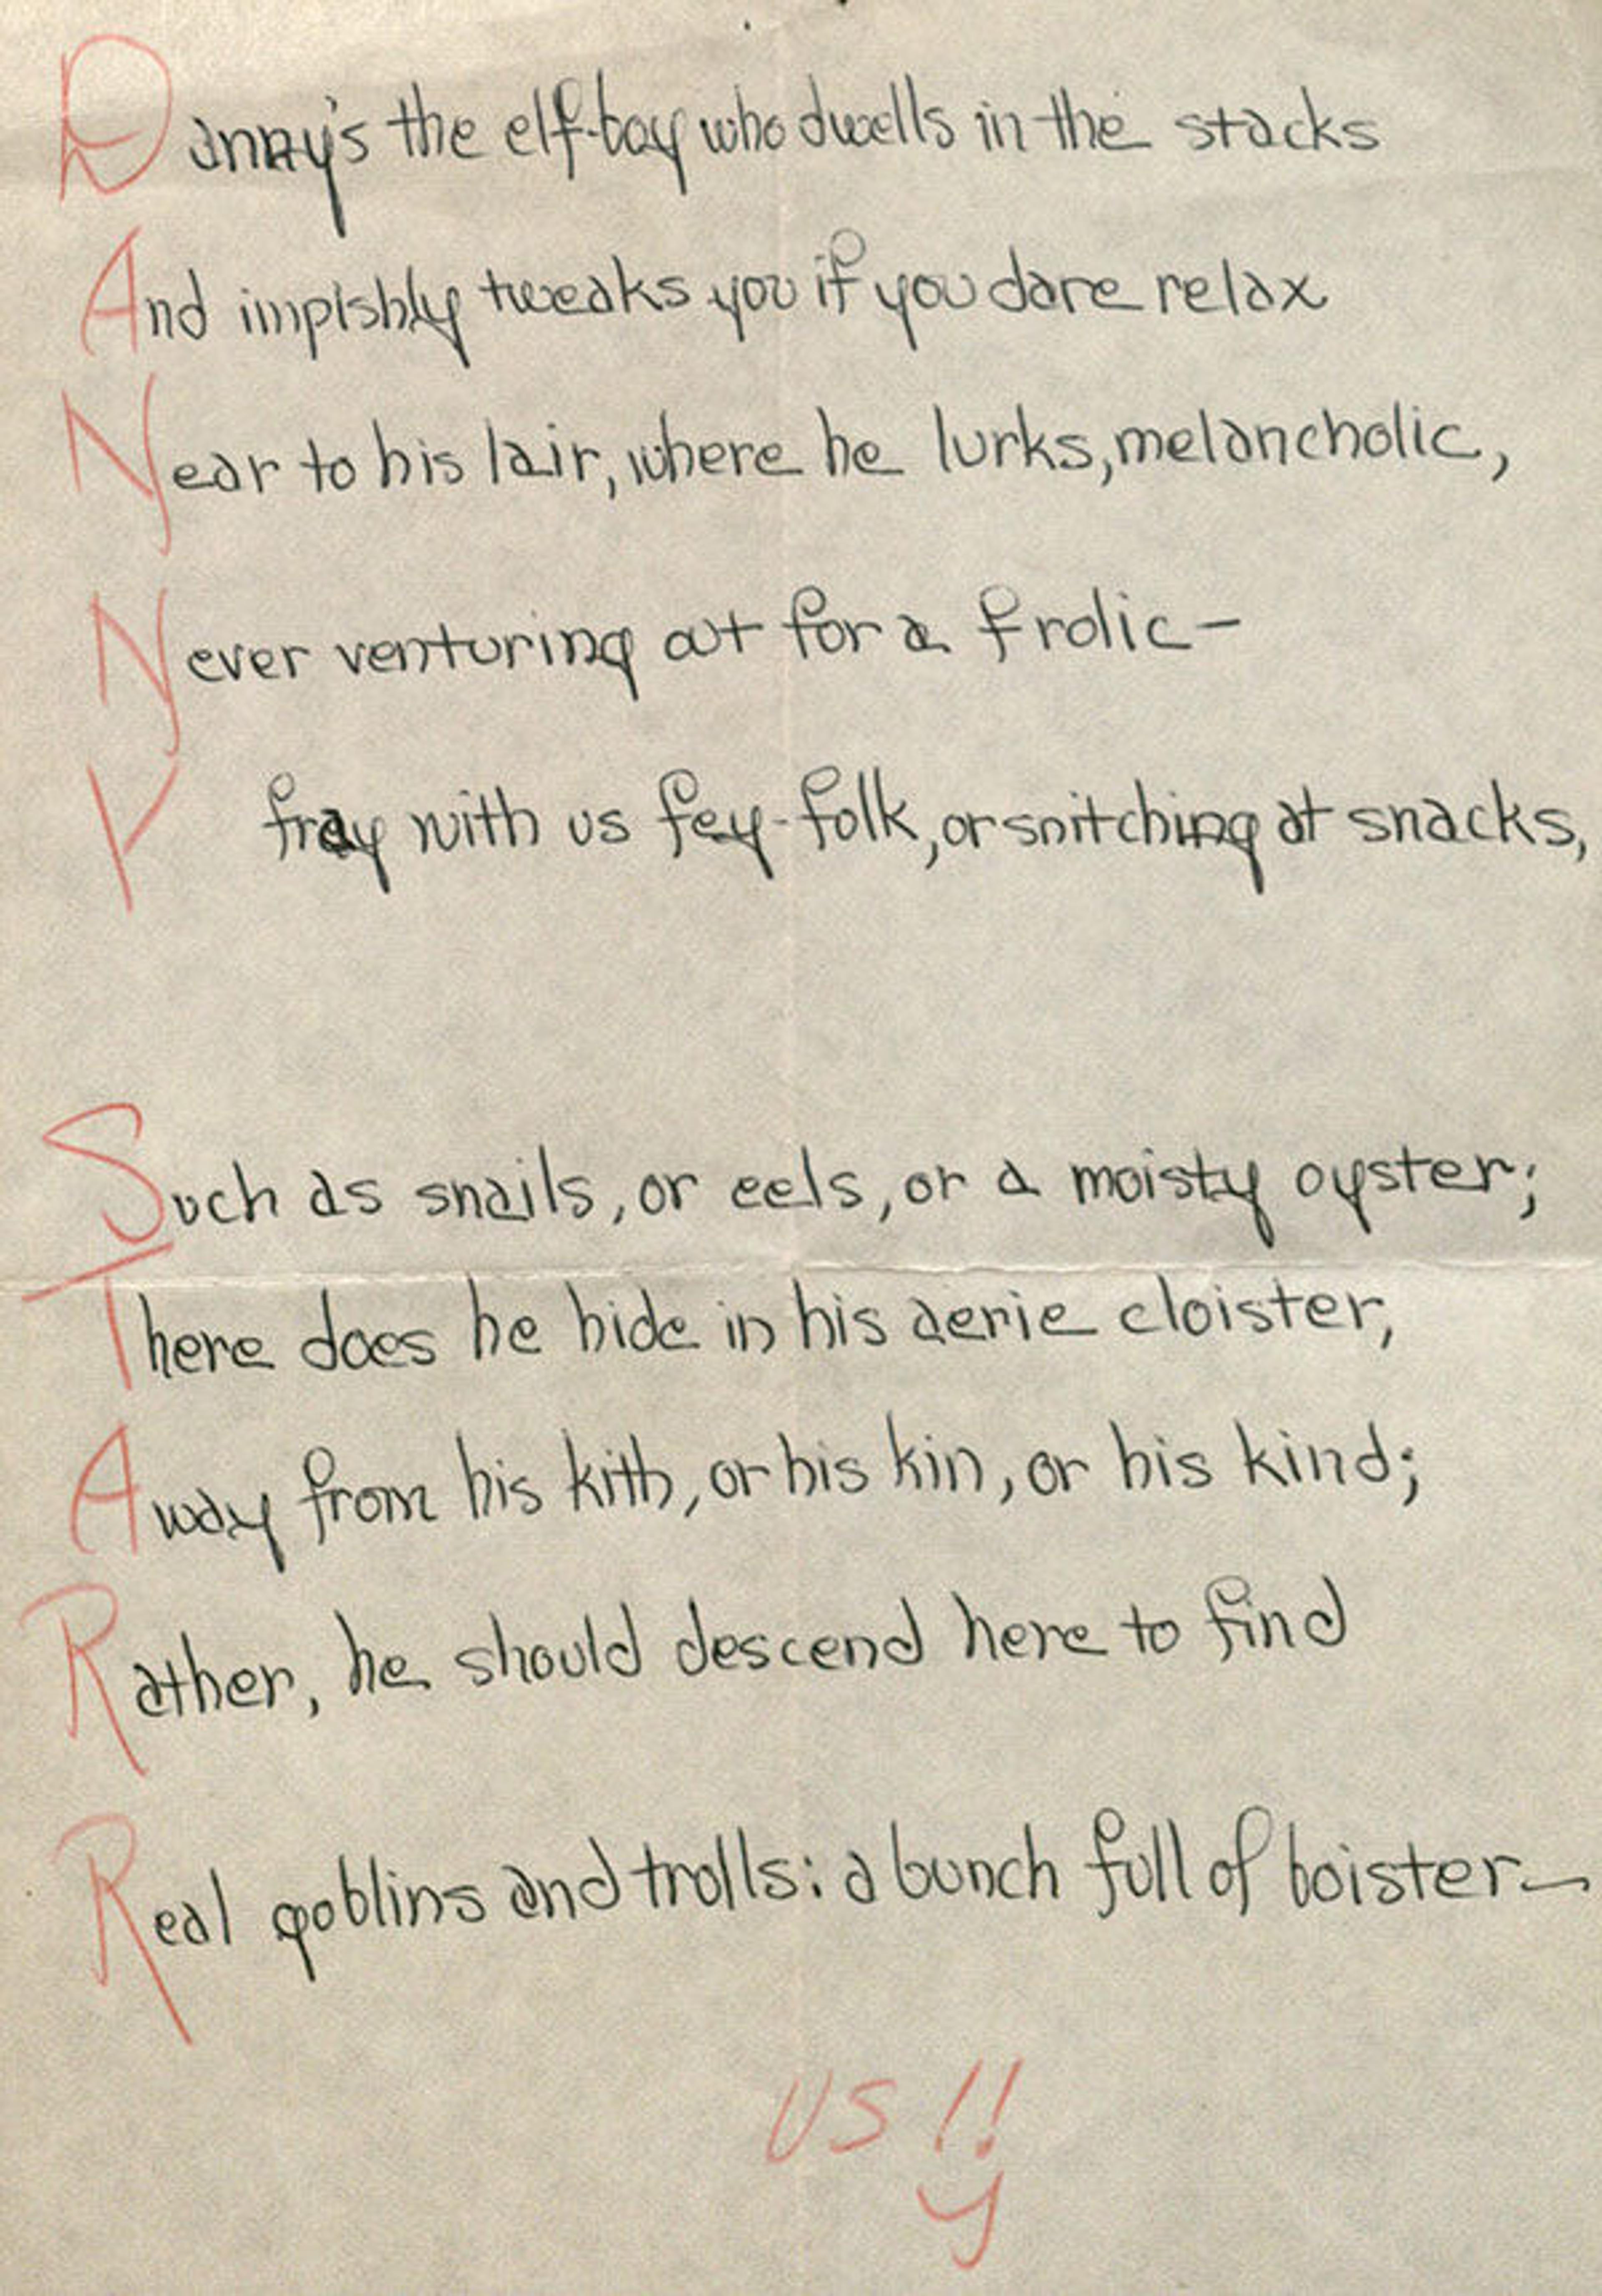 Danny's the elf-boy who dwells in the stacks
And impishly tweaks you if you dare relax
Near to his lair, where he lurks, melancholic,
Never venturing out for a frolic—
Y fray with us fey-folk, or snitching at snacks,
Such as snails, or eels, or a moisty oyster;
There does he hide in his aerie cloister,
Away from his kith, or his kin, or his kind;
Rather, he should descend here to find
Real goblins and trolls: a bunch full of boister—
US!!
y